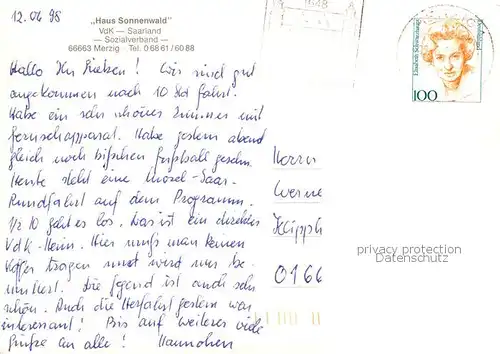 12.06.98
„Haus Sonnenwald"
VdK — Saarland
— Sozialverband —
66663 Merzig Tel. 0 68 61 / 60 88
Hallo Ihr Lieben! Wir sind gut
angekommen nach 10 Std Fahrt.
Habe ein sehr schönes Zimmer mit
Fernsehapparat. Habe gestern abend
gleich noch bißchen Fußball gesehn.
Heute steht eine Mosel-Saar-
Rundfahrt auf dem Programm.
1/2 10 geht es los. Das ist ein direktes
VdK-Heim. Hier muß man keinen
Koffer tragen und wird nur be-
muttert. Die Gegend ist auch sehr
schön. Auch die Herfahrt gestern war
interessant! Bis auf weiteres viele
Grüße an alle! Hannchen
Herrn
Werne
Klipph
0166
Elisabeth Schwarzhaupt
Deutschland
100
privacy protection
Datenschutz